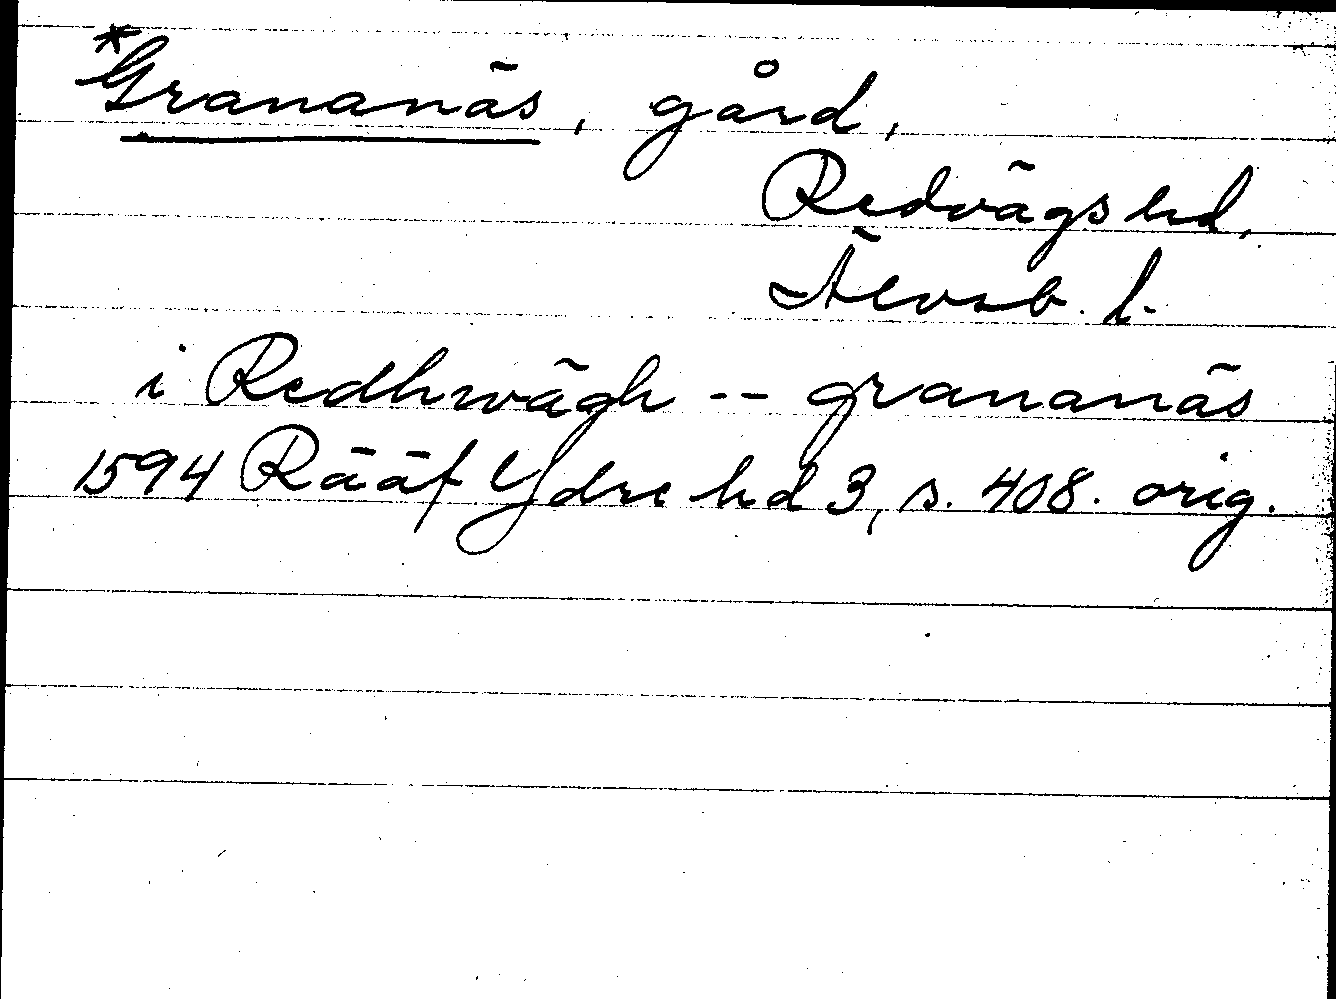 *Grananäs, gård,
Redvägs hd,
Älvsb. l.
i Redhwägh -- grananäs
1594 Rääf Ydre hd 3, s. 408. orig.